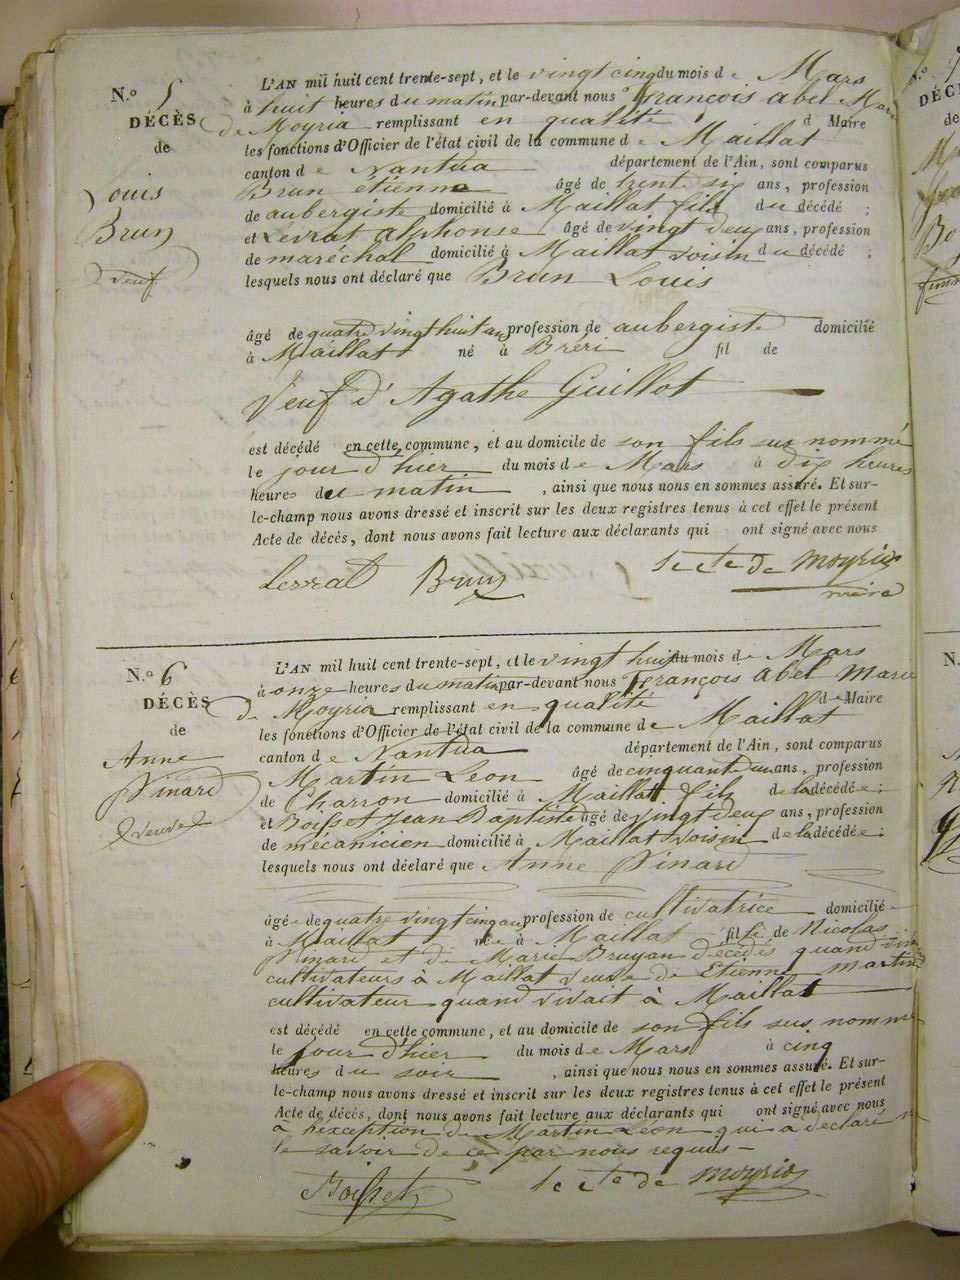 N.o 5
DÉCÈS
de
Louis
Brun
Veuf
L'AN mil huit cent trente-sept, et le vingt cinq du mois de Mars
à huit heures du matin par-devant nous François Abel Marie
de Moyria remplissant en qualité d Maire
les fonctions d'Officier de l'état civil de la commune de Maillat
canton de Nantua département de l'Ain, sont comparus
Brun etienne âgé de trente six ans, profession
de aubergiste domicilié à Maillat fils du décédé ;
et Levrat alphonse âgé de vingt deux ans, profession
de maréchal domicilié à Maillat voisin du décédé ;
lesquels nous ont déclaré que Brun Louis
âgé de quatre vingt huit ans profession de aubergiste domicilié
à Maillat né à Breri fil de
Veuf d'Agathe Guillot
est décédé en cette commune, et au domicile de son fils sus nommé
le jour d'hier du mois de Mars à dix heures
heures du matin , ainsi que nous nous en sommes assuré. Et sur-
le-champ nous avons dressé et inscrit sur les deux registres tenus à cet effet le présent
Acte de décès, dont nous avons fait lecture aux déclarants qui ont signé avec nous
Levrat Brun le cte de Moyria
maire
N.o 6
DÉCÈS
de
Anne
Pinard
veuve
L'AN mil huit cent trente-sept, et le vingt huit du mois de Mars
à onze heures du matin par-devant nous François Abel Marie
de Moyria remplissant en qualité d Maire
les fonctions d'Officier de l'état civil de la commune de Maillat
canton de Nantua département de l'Ain, sont comparus
Martin Leon âgé de cinquante un ans, profession
de Charron domicilié à Maillat fils de la décédée ;
et Boisset Jean Baptiste âgé de vingt deux ans, profession
de mécanicien domicilié à Maillat voisin de la décédée ;
lesquels nous ont déclaré que Anne Pinard
âgé de quatre vingt cinq ans profession de cultivatrice domicilié
à Maillat née à Maillat fille de Nicolas
Pinard et de Marie Bruyan décédés quand viv
cultivateurs à Maillat veuve de Etienne Martin
cultivateur quand vivait à Maillat
est décédé en cette commune, et au domicile de son fils sus nommé
le jour d'hier du mois de Mars à cinq
heures du soir , ainsi que nous nous en sommes assuré. Et sur-
le-champ nous avons dressé et inscrit sur les deux registres tenus à cet effet le présent
Acte de décès, dont nous avons fait lecture aux déclarants qui ont signé avec nous
à l'exception de Martin Léon qui a déclaré n
le savoir de ce par nous requis
Boisset le cte de Moyria